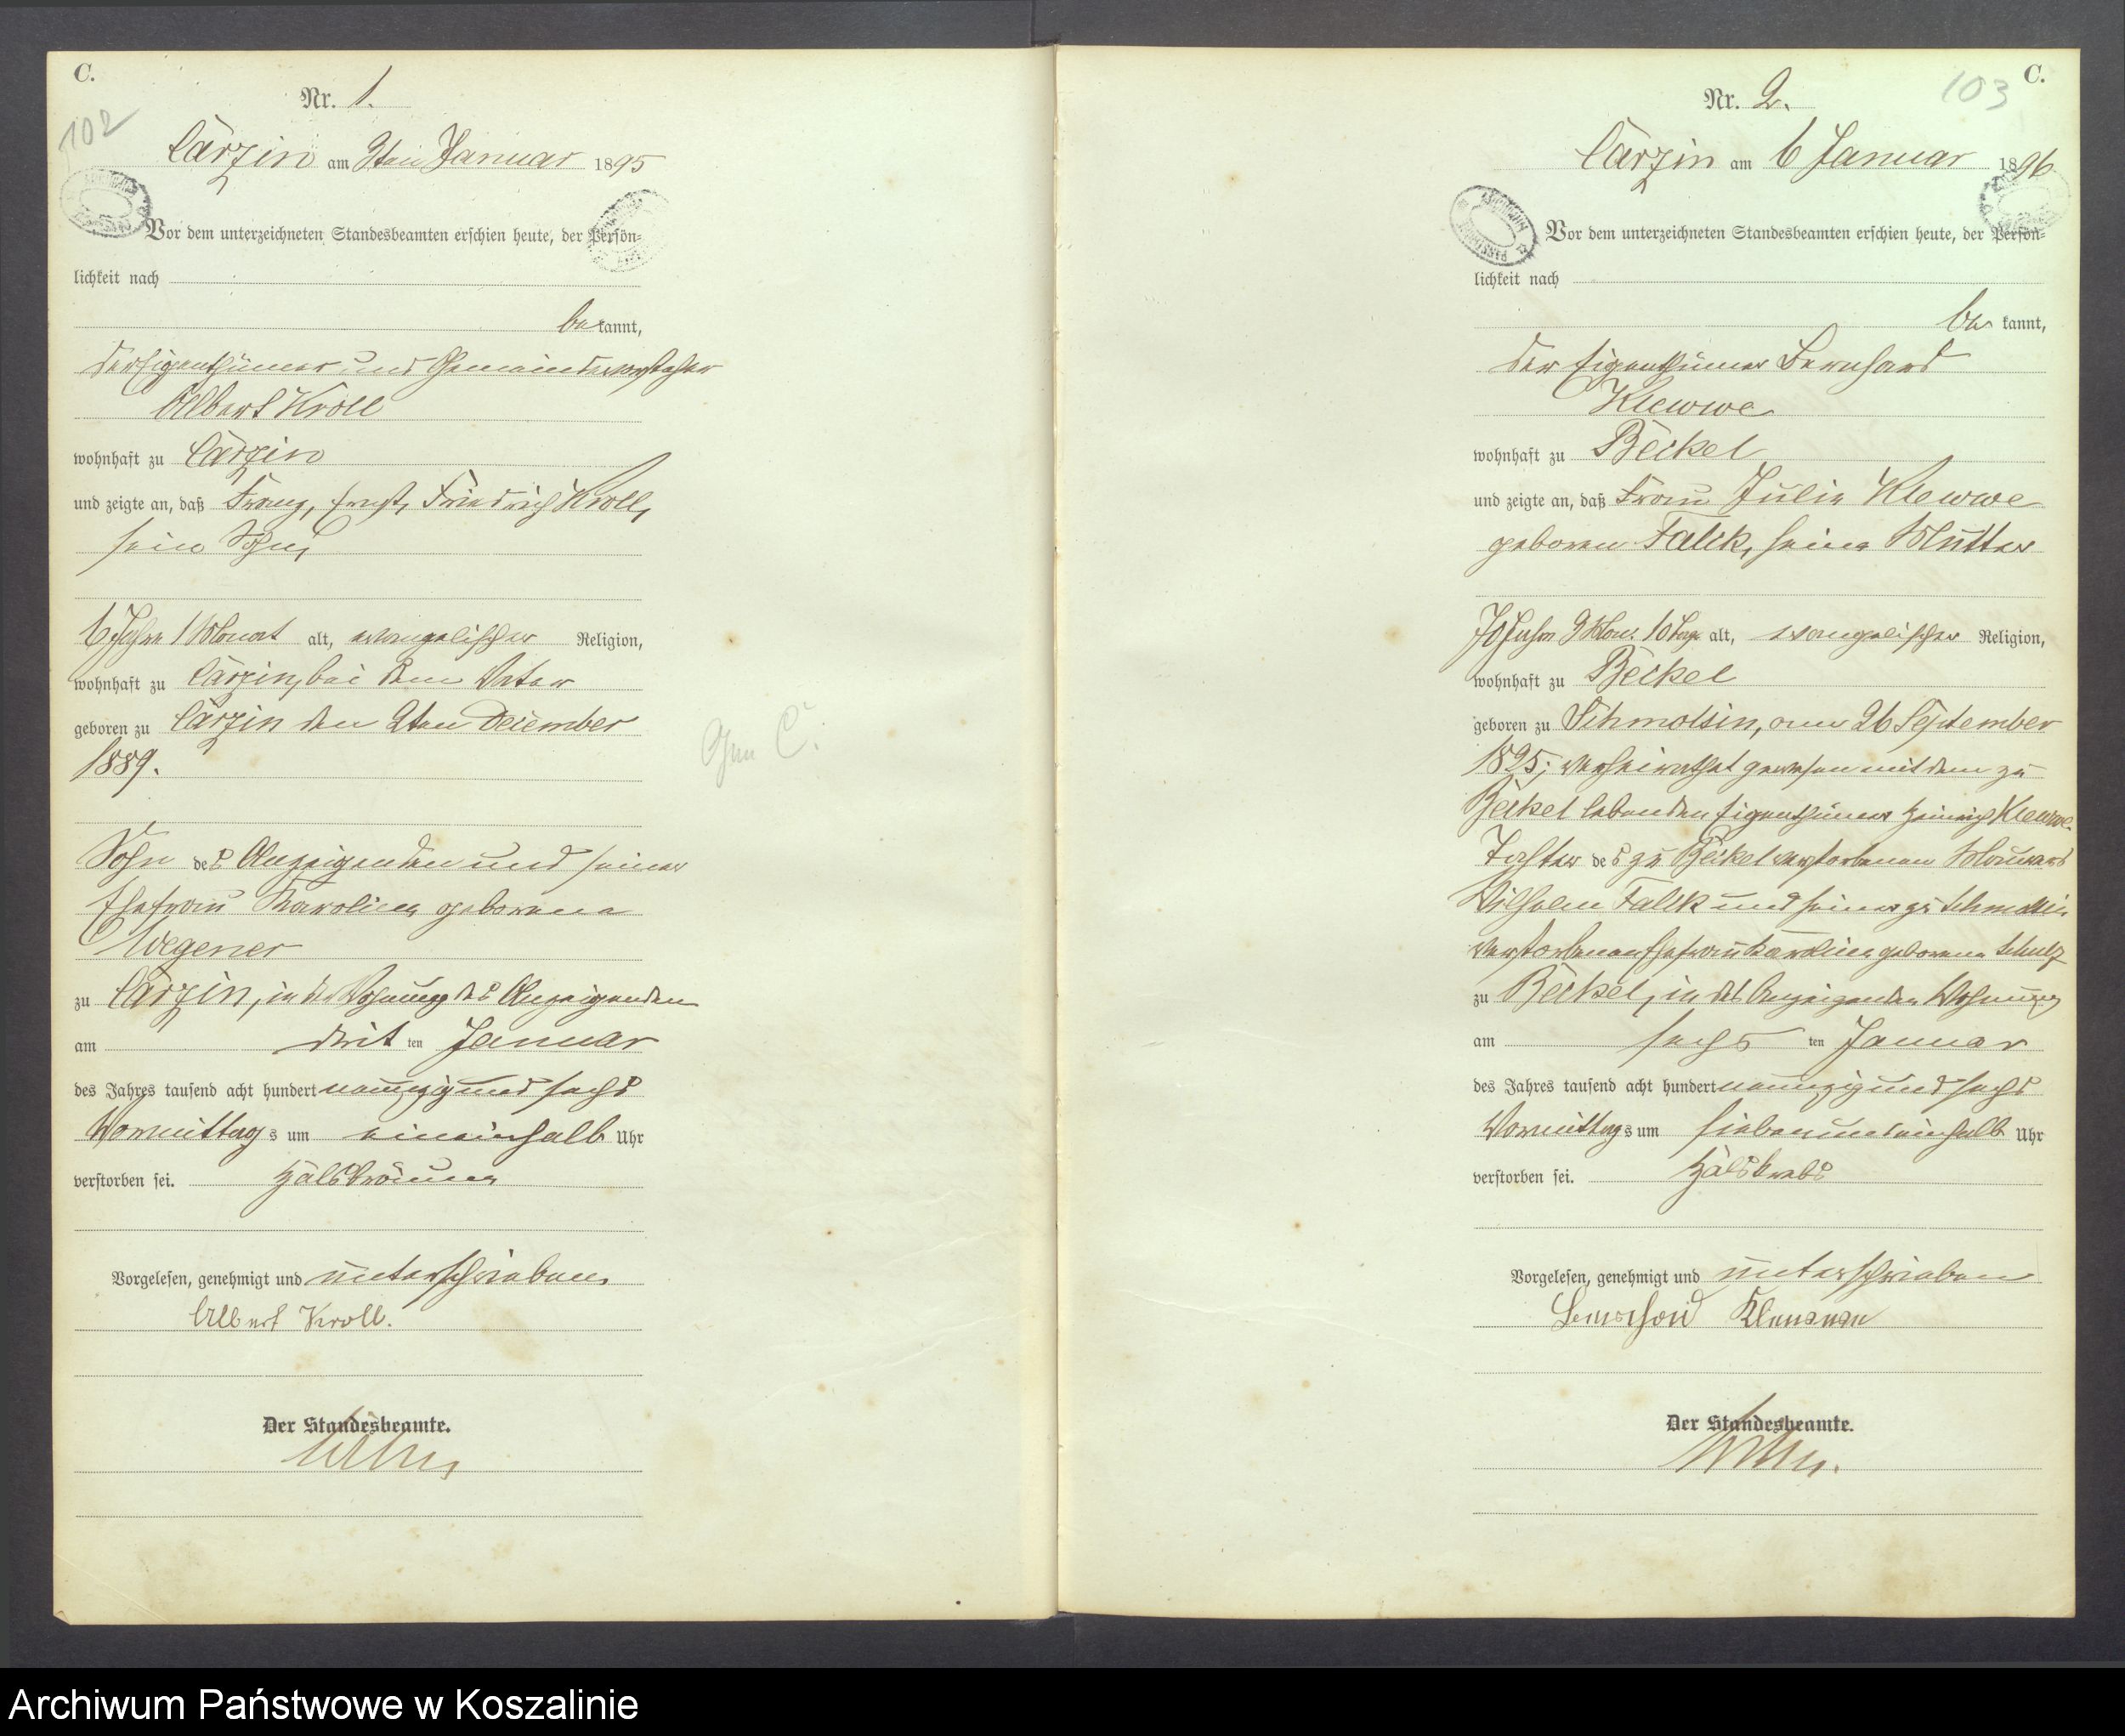 C.
102
Nr. 1.
Cärzin am 3ten Januar 1895
Vor dem unterzeichneten Standesbeamten erschien heute, der Persön=
lichkeit nach
bekannt,
der Eigenthümer und Gemeindevorsteher
Albert Kroll
wohnhaft zu Cärzin
und zeigte an, daß Franz, Ernst, Friedrich Kroll,
sein Sohn,
6 Jahre 1 Monat alt, evangelischer Religion,
wohnhaft zu Cärzin, bei dem Vater
geboren zu Cärzin den 2ten December
1889.
Sohn des Anzeigenden und seiner
Ehefrau Karoline geborene
Wegener
zu Cärzin, in der Wohnung des Anzeigenden
am dritten Januar
des Jahres tausend acht hundert neunzig und sechs
Vormittags um eineinhalb Uhr
verstorben sei. Halsbräune
Vorgelesen, genehmigt und unterschrieben
Albert Kroll.
Der Standesbeamte.
C.
103
Nr. 2.
Cärzin am 6 Januar 1896
Vor dem unterzeichneten Standesbeamten erschien heute, der Persön=
lichkeit nach
bekannt,
der Eigenthümer Bernhard
Klewwe
wohnhaft zu Beckel
und zeigte an, daß Frau Julie Klewwe
geboren Falck, seine Mutter
70 Jahre 9 Mon. 10 Tage alt, evangelischer Religion,
wohnhaft zu Beckel
geboren zu Schmolsin, am 26 September
1825; verheirathet gewesen mit dem zu
Beckel lebenden Eigenthümer Heinrich Klewwe.
Tochter des zu Beckel verstorbenen Maurers
Wilhelm Falck und seiner zu Schmolsin
verstorbenen Ehefrau Karoline geborene Schulz
zu Beckel, in des Anzeigenden Wohnung
am sechsten Januar
des Jahres tausend acht hundert neunzig und sechs
Vormittags um sieben und einhalb Uhr
verstorben sei. Halskrebs
Vorgelesen, genehmigt und unterschrieben
Bernhard Klewwe
Der Standesbeamte.
Archiwum Państwowe w Koszalinie